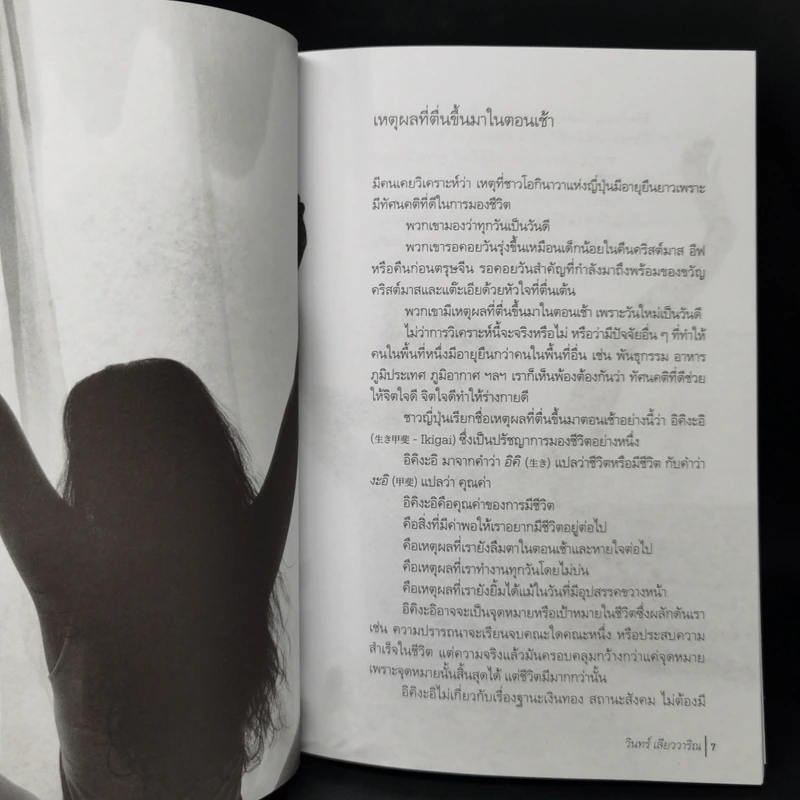 เหตุผลที่ตื่นขึ้นมาในตอนเช้า
มีคนเคยวิเคราะห์ว่า เหตุที่ชาวโอกินาวาแห่งญี่ปุ่นมีอายุยืนยาวเพราะ
มีทัศนคติที่ดีในการมองชีวิต
พวกเขามองว่าทุกวันเป็นวันดี
พวกเขารอคอยวันรุ่งขึ้นเหมือนเด็กน้อยในคืนคริสต์มาส อีฟ
หรือคืนก่อนตรุษจีน รอคอยวันสำคัญที่กำลังมาถึงพร้อมของขวัญ
คริสต์มาสและแต๊ะเอียด้วยหัวใจที่ตื่นเต้น
พวกเขามีเหตุผลที่ตื่นขึ้นมาในตอนเช้า เพราะวันใหม่เป็นวันดี
ไม่ว่าการวิเคราะห์นี้จะจริงหรือไม่ หรือว่ามีปัจจัยอื่น ๆ ที่ทำให้
คนในพื้นที่หนึ่งมีอายุยืนกว่าคนในพื้นที่อื่น เช่น พันธุกรรม อาหาร
ภูมิประเทศ ภูมิอากาศ ฯลฯ เราก็เห็นพ้องต้องกันว่า ทัศนคติที่ดีช่วย
ให้จิตใจดี จิตใจดีทำให้ร่างกายดี
ชาวญี่ปุ่นเรียกชื่อเหตุผลที่ตื่นขึ้นมาตอนเช้าอย่างนี้ว่า อิคิงะอิ
(生き甲斐 - Ikigai) ซึ่งเป็นปรัชญาการมองชีวิตอย่างหนึ่ง
อิคิงะอิ มาจากคำว่า อิคิ (生き) แปลว่าชีวิตหรือมีชีวิต กับคำว่า
งะอิ (甲斐) แปลว่า คุณค่า
อิคิงะอิคือคุณค่าของการมีชีวิต
คือสิ่งที่มีค่าพอให้เราอยากมีชีวิตอยู่ต่อไป
คือเหตุผลที่เรายังลืมตาในตอนเช้าและหายใจต่อไป
คือเหตุผลที่เราทำงานทุกวันโดยไม่บ่น
คือเหตุผลที่เรายังยิ้มได้แม้ในวันที่มีอุปสรรคขวางหน้า
อิคิงะอิอาจจะเป็นจุดหมายหรือเป้าหมายในชีวิตซึ่งผลักดันเรา
เช่น ความปรารถนาจะเรียนจบคณะใดคณะหนึ่ง หรือประสบความ
สำเร็จในชีวิต แต่ความจริงแล้วมันครอบคลุมกว้างกว่าแค่จุดหมาย
เพราะจุดหมายนั้นสิ้นสุดได้ แต่ชีวิตมีมากกว่านั้น
อิคิงะอิไม่เกี่ยวกับเรื่องฐานะเงินทอง สถานะสังคม ไม่ต้องมี
วินทร์ เลียววาริณ | 7